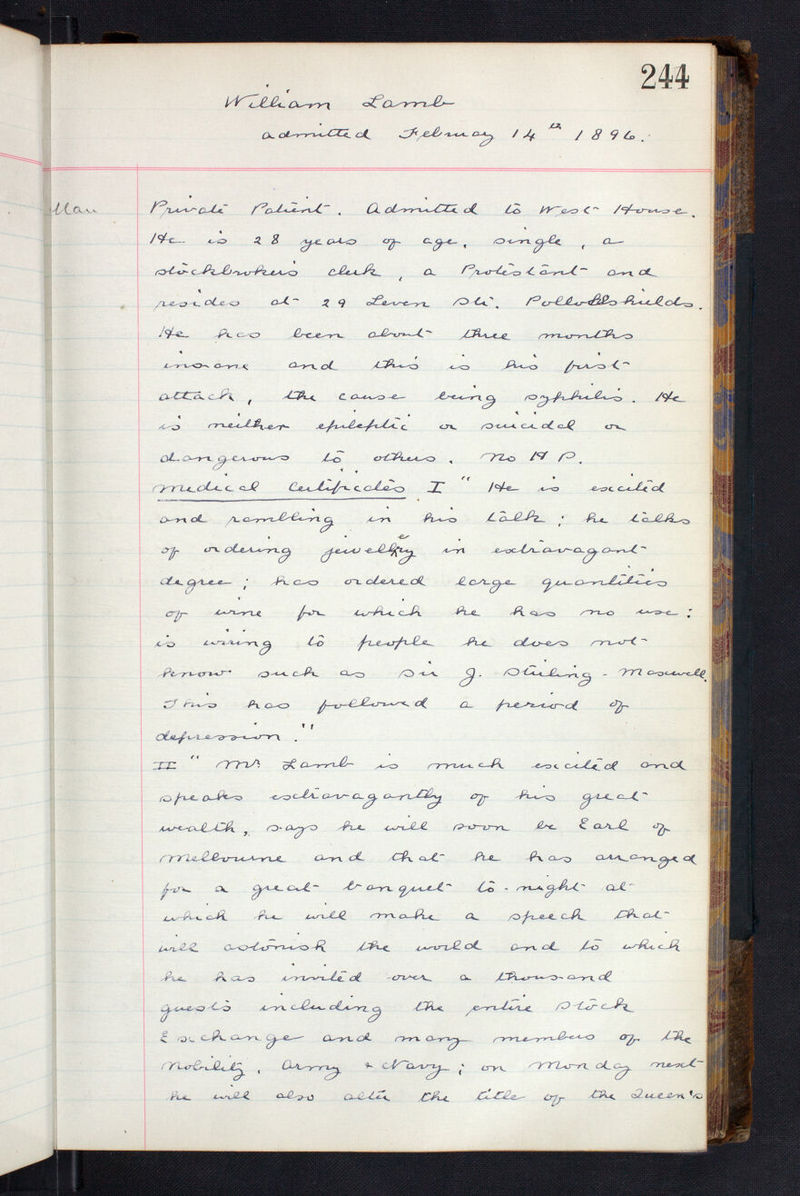 244
William Lamb
admitted February 14th 1896.
Private Patient. Admitted to West House.
He is 28 years of age, single, a
stockbroker's clerk, a Protestant and
resides at 29 Leven St. Pollokshields.
He has been about three months
insane and this is his first
attack, the cause being syphilis. He
is neither epileptic or suicidal or
dangerous to others. No H P.
Medical Certificates I " He is excited
and rambling in his talk; he talks
of ordering jewellery in extravagant
degree; has ordered large quantities
of wine for which he has no use:
is wiring to people he does not
know such as Sir J. Stirling-Maxwell.
This has followed a period of
depression."
II " Mr Lamb is much excited and
speaks extravagantly of his great
wealth, says he will soon be Earl of
Mellbourne and that he has arranged
for a great banquet to-night at
which he will make a speech that
will astonish the world and to which
he has invited over a thousand
guests including the entire Stock
Exchange and many members of the
Nobility, Army & Navy; on Monday next
he will also alter the title of the Queen's